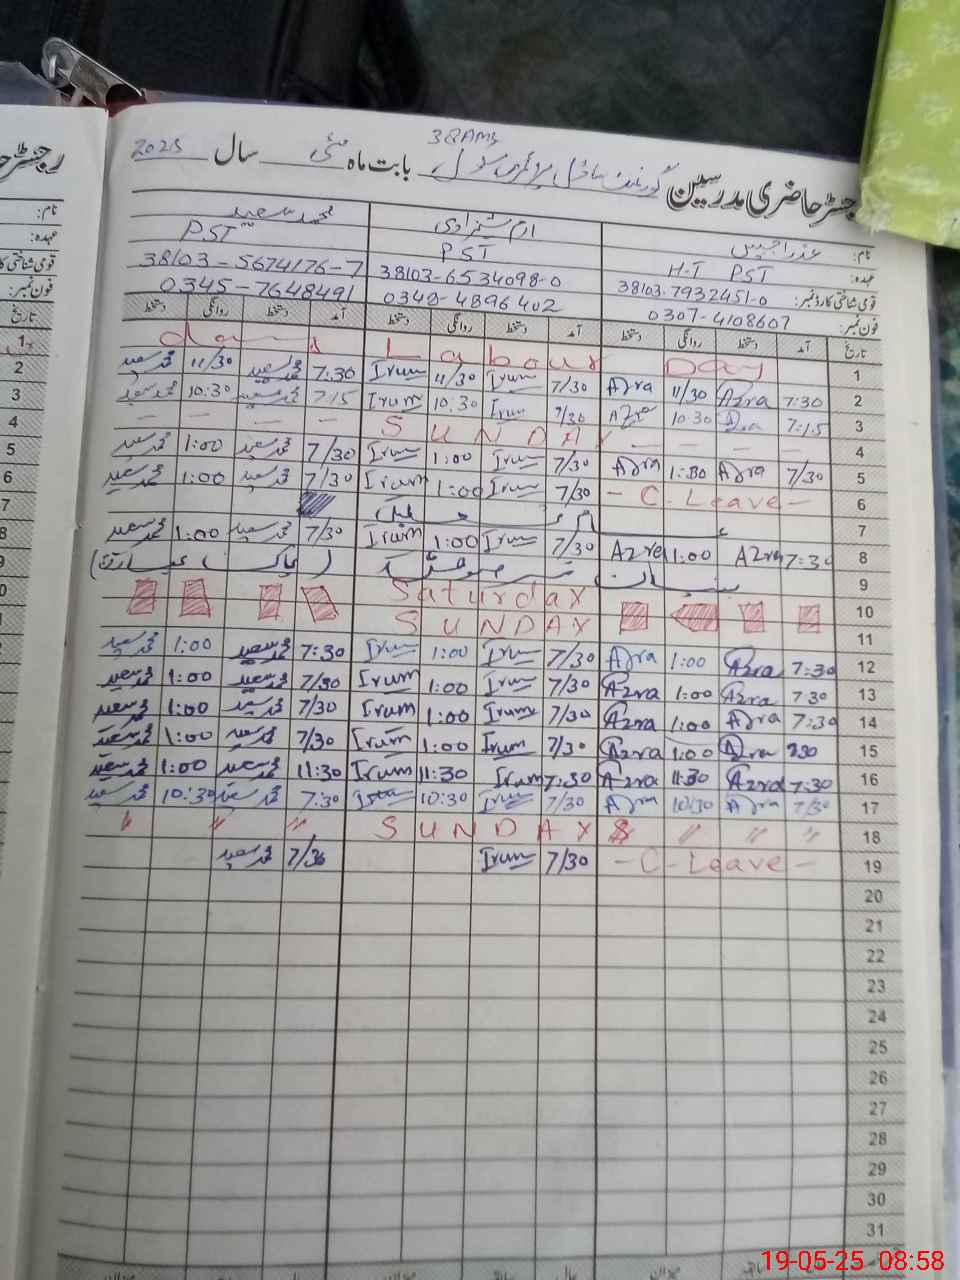 38AMB
رجسٹر حاضری مدرسین گورنمنٹ ماڈل پرائمری سکول بابت ماہ مئی سال 2025
نام: عذرا جبیں ارم شہزادی محمد سعید
عہدہ: H-T PST PST PST
قومی شناختی کارڈ نمبر: 38103-7932451-0 38103-6534098-0 38103-5674176-7
فون نمبر: 0307-4108607 0348-4896402 0345-7648491
تاریخ آمد دستخط روانگی دستخط آمد دستخط روانگی دستخط آمد دستخط روانگی دستخط
1 Labour Day
2 7:30 Azra 11/30 Azra 7/30 Irum 11/30 Irum 7:30 محمد سعید 11/30 محمد سعید
3 7:15 Azra 10:30 Azra 7/30 Irum 10:30 Irum 7:15 محمد سعید 10:30 محمد سعید
4 SUNDAY
5 7/30 Azra 1:00 Azra 7/30 Irum 1:00 Irum 7/30 محمد سعید 1:00 محمد سعید
6 - C - Leave - 7/30 Irum 1:00 Irum 7/30 محمد سعید 1:00 محمد سعید
7
8 7:30 Azra 1:00 Azra 7/30 Irum 1:00 Irum 7/30 محمد سعید 1:00 محمد سعید
9
10 Saturday
11 SUNDAY
12 7:30 Azra 1:00 Azra 7/30 Irum 1:00 Irum 7:30 محمد سعید 1:00 محمد سعید
13 7:30 Azra 1:00 Azra 7/30 Irum 1:00 Irum 7/30 محمد سعید 1:00 محمد سعید
14 7:30 Azra 1:00 Azra 7/30 Irum 1:00 Irum 7/30 محمد سعید 1:00 محمد سعید
15 Azra 1:00 Azra 7/30 Irum 1:00 Irum 7/30 محمد سعید 1:00 محمد سعید
16 7:30 Azra 11:30 Azra 7:30 Irum 11:30 Irum 11:30 محمد سعید 1:00 محمد سعید
17 7/30 Azra 10:30 Azra 7/30 Irum 10:30 Irum 7:30 محمد سعید 10:30 محمد سعید
18 SUNDAY
19 - C - Leave - 7/30 Irum 7/30 محمد سعید
20
21
22
23
24
25
26
27
28
29
30
31
19-05-25 08:58